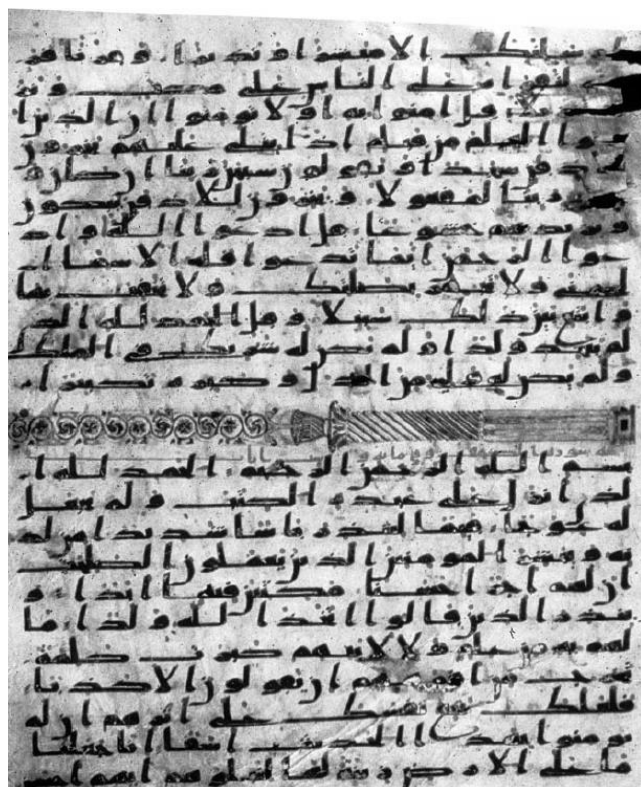 ك الا مبشرا ونذيرا وقرانا فر
لتقراه على الناس على مكث ونز
قل امنوا به او لا تومنوا ان الذين ا
وتوا العلم من قبله اذا يتلى عليهم يخرون
سجدا ويقولون سبحن ربنا ان كان و
ربنا لمفعولا ويخرون للاذقن يبكون
ويزيدهم خشوعا قل ادعوا الله او اد
عوا الرحمن ايا ما تدعوا فله الاسما ال
حسنى ولا تجهر بصلتك ولا تخفت بها
وابتغ بين ذلك سبيلا وقل الحمد لله الذى
لم يتخذ ولدا ولم يكن له شريك فى الملك
ولم يكن له ولى من الذل وكبره تكبيرا
بسم الله الرحمن الرحيم الحمد لله ا
لذى انزل على عبده الكتب ولم يجعل
له عوجا قيما لينذر باسا شديدا من لد
نه ويبشر المومنين الذين يعملون الصلحت
ان لهم اجرا حسنا مكثين فيه ابدا و
ينذر الذين قالوا اتخذ الله ولدا ما
لهم به من علم ولا لابايهم كبرت كلمة
تخرج من افوههم ان يقولون الا كذبا
فلعلك بخع نفسك على اثرهم ان لم
يومنوا بهذا الحديث اسفا انا جعلنا
ما على الارض زينة لها لنبلوهم ايهم احسن